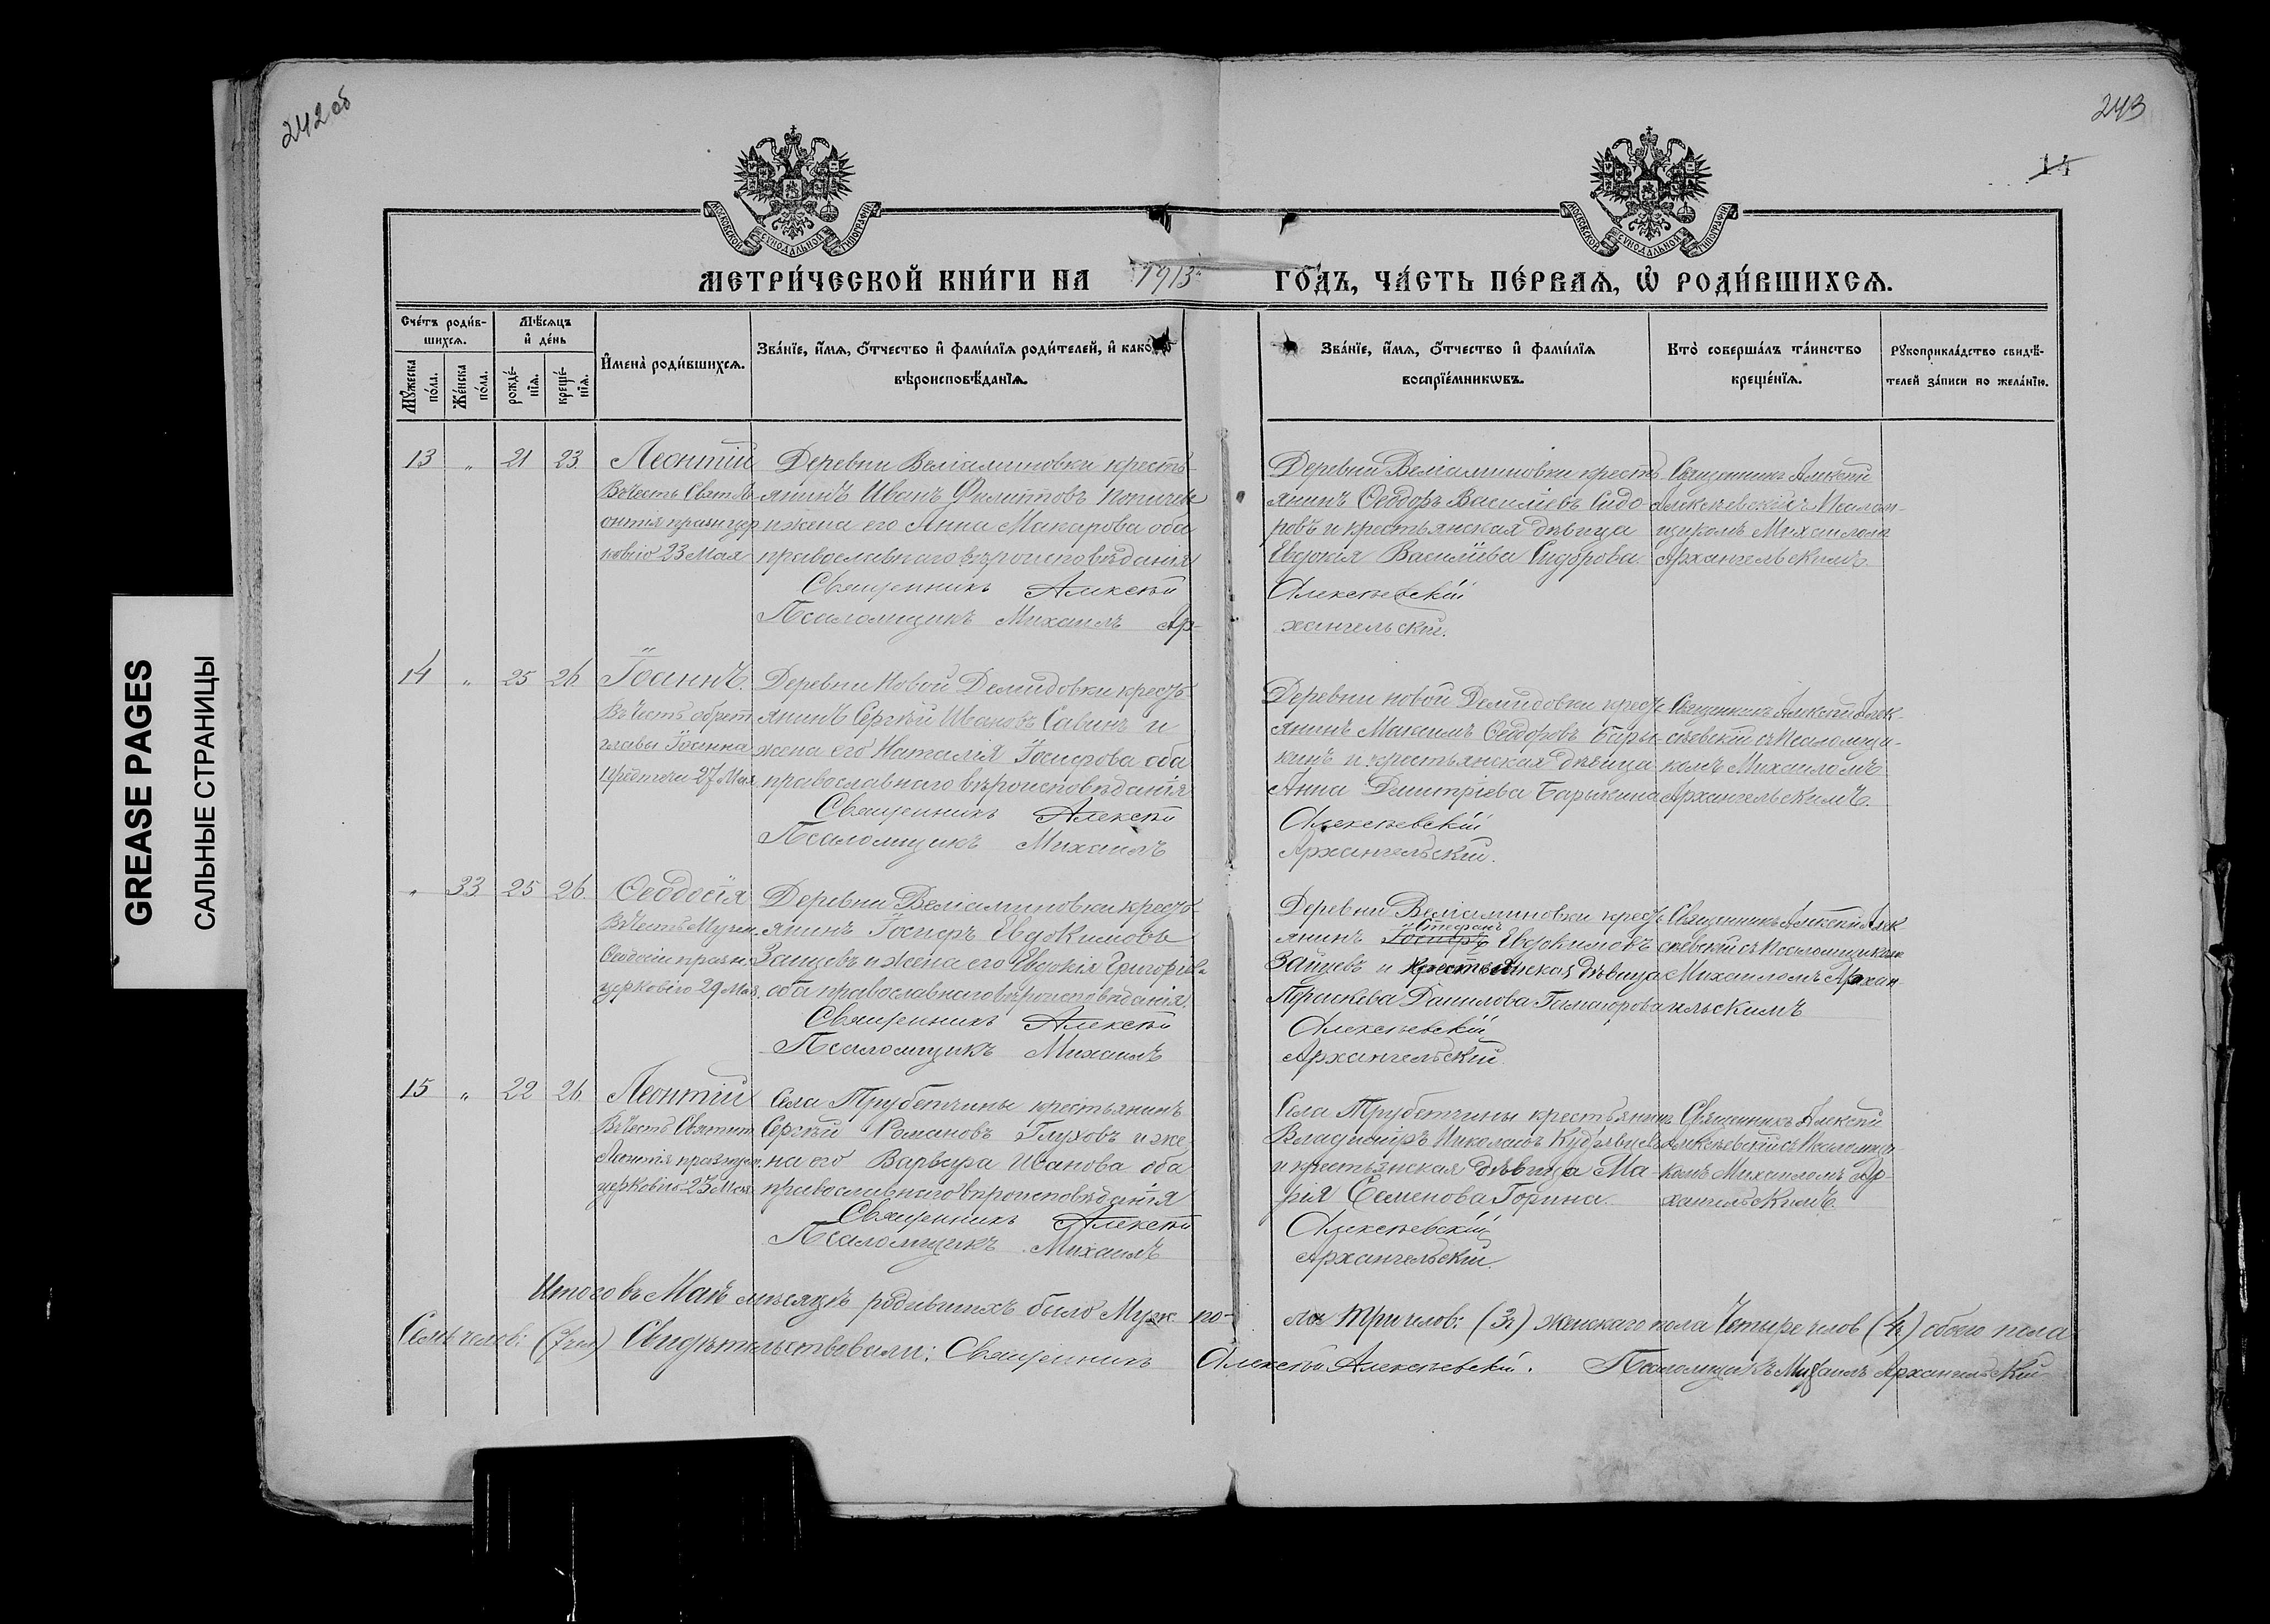 242 об
243
14
МОСКОВСКОЙ СѴНОДАЛЬНОЙ ТИПОГРАФІИ
МОСКОВСКОЙ СѴНОДАЛЬНОЙ ТИПОГРАФІИ
МЕТРИ́ЧЕСКОЙ КНИ́ГИ НА 1913 ГО́ДЪ, ЧА́СТЬ ПЕ́РВАѦ, Ѡ҆ РОДИ́ВШИХСѦ.
Сче́тъ роди́в-
шихсѧ.
Мѹ́жеска по́ла.
Же́нска по́ла.
Мѣ́сѧцъ и҆ де́нь
рожде́-нїѧ.
креще́-нїѧ.
И҆мена̀ роди́вшихсѧ.
Зва́нїе, и҆́мѧ, ѻ҆́тчество и҆ фами́лїѧ роди́телей, и҆ како́гѡ
вѣроисповѣ́данїѧ.
Зва́нїе, и҆́мѧ, ѻ҆́тчество и҆ фами́лїѧ
воспрїе́мникѡвъ.
Кто̀ соверша́лъ та́инство
креще́нїѧ.
Рѹкоприкла́дство свидѣ́-
телей за́писи по жела́нїю.
13 " 21 23 Леонтій
Въ честь Свят. Ле-
онтія празн. цер
ковію 23 Мая
Деревни Веліаминовки кресть-
янинъ Иванъ Филипповъ
и жена его Анна Макарова оба
православнаго вѣроисповѣданія
Священникъ Алексѣй Алексѣевскій
Псаломщикъ Михаилъ Ар-хангельскій.
Деревни Веліаминовки кресть
янинъ Ѳеодоръ Васильевъ Сидо-
ровъ и крестьянская дѣвица
Евдокія Васильева Сидорова.
Священникъ Алексѣй
Алексѣевскій съ Псалом-
щикомъ Михаиломъ
Архангельскимъ.
14 " 25 26 Іоаннъ.
Въ честь обрет.
главы Іоанна
Предтечи 27 Мая
Деревни Новой Демидовки кресть-
янинъ Сергѣй Ивановъ Савинъ и
жена его Наталія Іосифова оба
православнаго вѣроисповѣданія
Священникъ Алексѣй Алексѣевскій
Псаломщикъ Михаилъ Архангельскій.
Деревни новой Демидовки кресть
янинъ Максимъ Ѳеодоровъ Бары-
кинъ и крестьянская дѣвица
Анна Димитріева Барыкина
Священникъ Алексѣй Алек-
сѣевскій съ Псаломщи-
комъ Михаиломъ
Архангельскимъ.
" 33 25 26 Ѳеодосія
Въ честь Мучен.
Ѳеодосіи празн.
церковію 29 Мая.
Деревни Веліаминовки кресть-
янинъ Іосифъ Евдокимовъ
Зайцевъ и жена его Евдокія Григорьева
оба православнаго вѣроисповѣданія.
Священникъ Алексѣй Алексѣевскій
Псаломщикъ Михаилъ Архангельскій.
Деревни Веліаминовки кресть
Стефанъ
янинъ Іосифъ Евдокимовъ
Зайцевъ и крестьянская дѣвица
Параскева Данилова
Священникъ Алексѣй Алек
сѣевскій съ Псаломщикомъ
Михаиломъ Архан
гельскимъ
15 " 22 26 Леонтій
Въ честь Святит.
Леонтія празнуем.
церковію 23 Мая
Села Трубетчины крестьянинъ
Сергѣй Романовъ Глуховъ и же
на его Варвара Иванова оба
православнаго вѣроисповѣданія
Священникъ Алексѣй Алексѣевскій
Псаломщикъ Михаилъ Архангельскій.
Села Трубетчины крестьянинъ
Владиміръ Николаевъ Кудрявцевъ
и крестьянская дѣвица Ма-
рія Семенова Горина.
Священникъ Алексѣй
Алексѣевскій съ Псаломщи-
комъ Михаиломъ Ар-
хангельскимъ.
Итого въ Маѣ мѣсяцѣ родившихъ было Муж по-ла Три челов: (3) женскаго пола Четыре челов (4) обоего пола
Семь челов: (7 чел) Свидѣтельствовали: Священникъ Алексѣй Алексѣевскій. Псаломщикъ Михаилъ Архангельскій
GREASE PAGES
САЛЬНЫЕ СТРАНИЦЫ